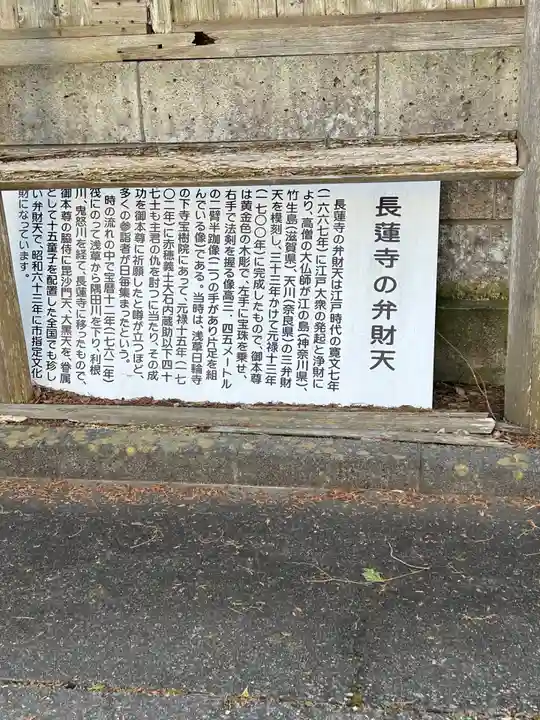 長蓮寺の弁財天
長蓮寺の弁財天は江戸時代の寛文七年
(一六六七年)に江戸大衆の発起と浄財に
より、高僧の大仏師が江の島(神奈川県)、
竹生島(滋賀県)、天川(奈良県)の三弁財
天を模刻し、三十三年かけて元禄十三年
(一七〇〇年)に完成したもので、御本尊
は黄金色の木彫で、左手に宝珠を乗せ、
右手で法剣を握る像高三、四五メートル
の二臂半跏像(二つの手があり片足を組
んでいる像)である。当時は、浅草日輪寺
の下寺宝樹院にあって、元禄十五年(一七
〇二年)に赤穂義士大石内蔵助以下四十
七士も主君の仇を討つに当たり、その成
功を御本尊に祈願したと噂が立つほど、
多くの参詣者が日毎集まったという。
時の流れの中で宝暦十二年(一七六二年)
筏にのって浅草から隅田川を下り、利根
川、鬼怒川を経て、長蓮寺に移ったもので、
御本尊の脇侍に毘沙門天、大黒天を、眷属
として十五童子を配置した全国でも珍し
い弁財天で、昭和六十三年に市指定文化
財になっています。